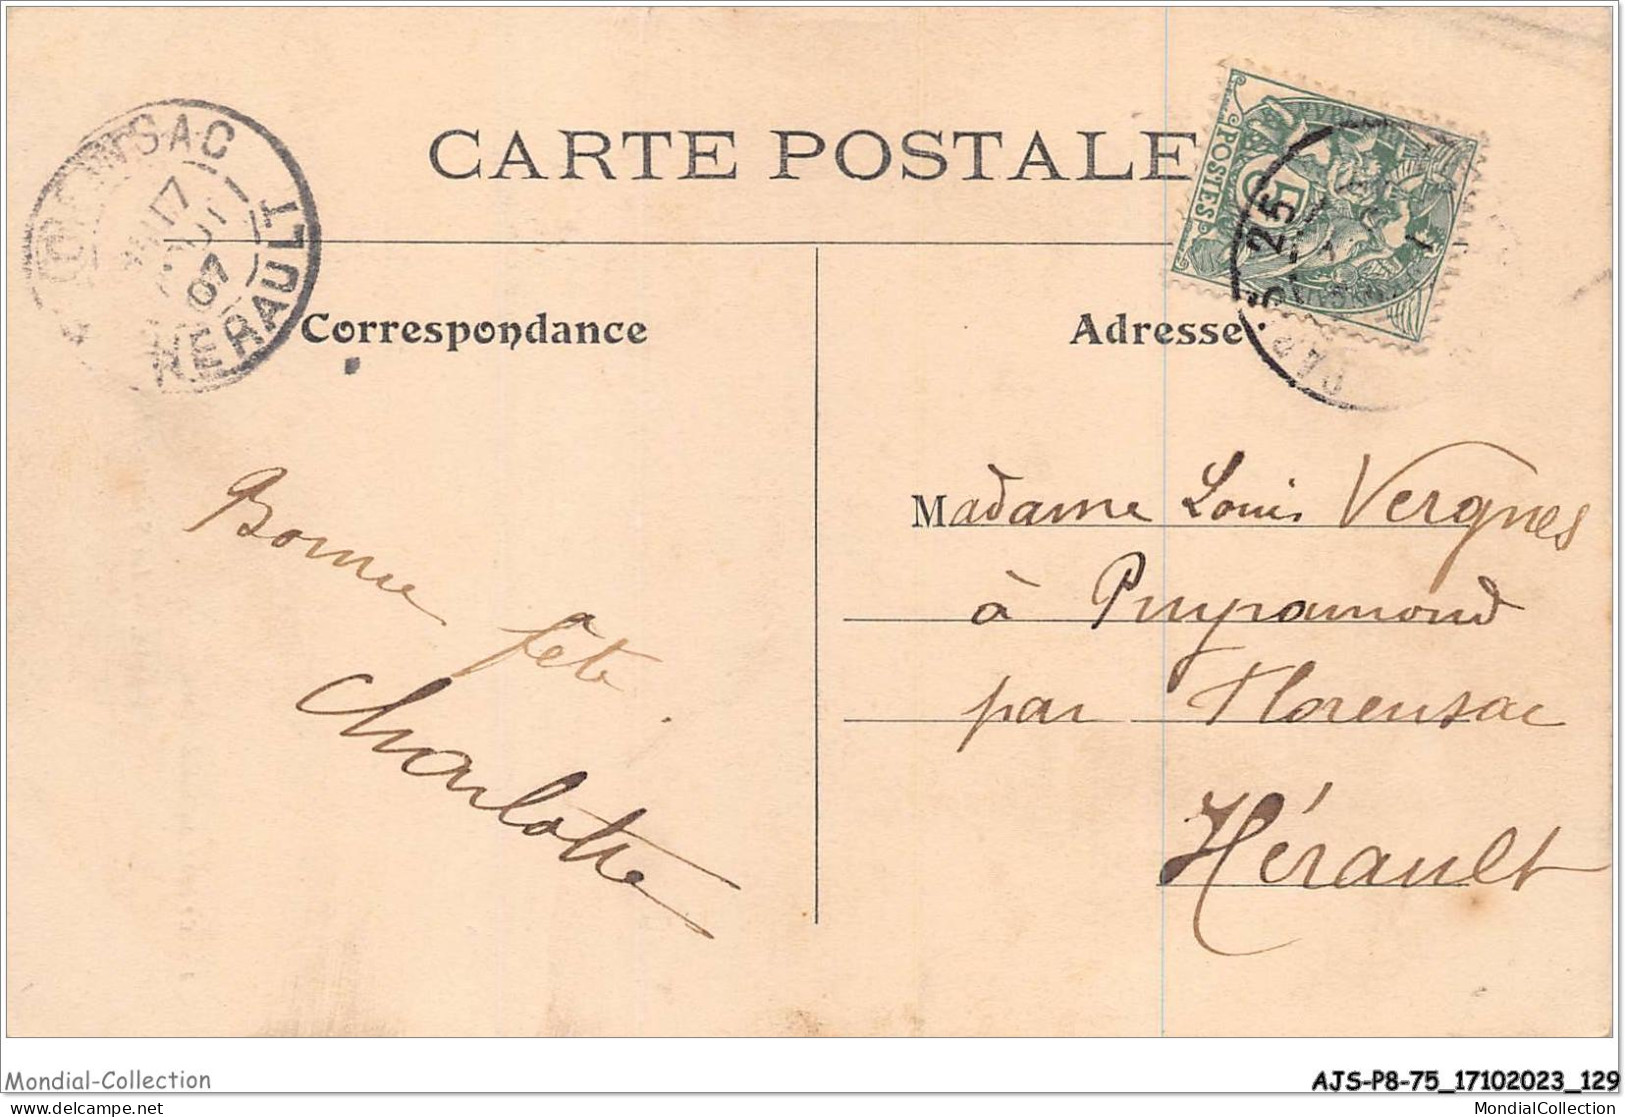 CARTE POSTALE
FLORENSAC
17
07
HERAULT
POSTES
5
5-25
PAR
Correspondance
Adresse
Bonne
fête
Charlotte
Madame Louis Vergnes
à Puypamond
par Florensac
Hérault
Mondial-Collection
AJS-P8-75_17102023_129
delcampe.net
MondialCollection